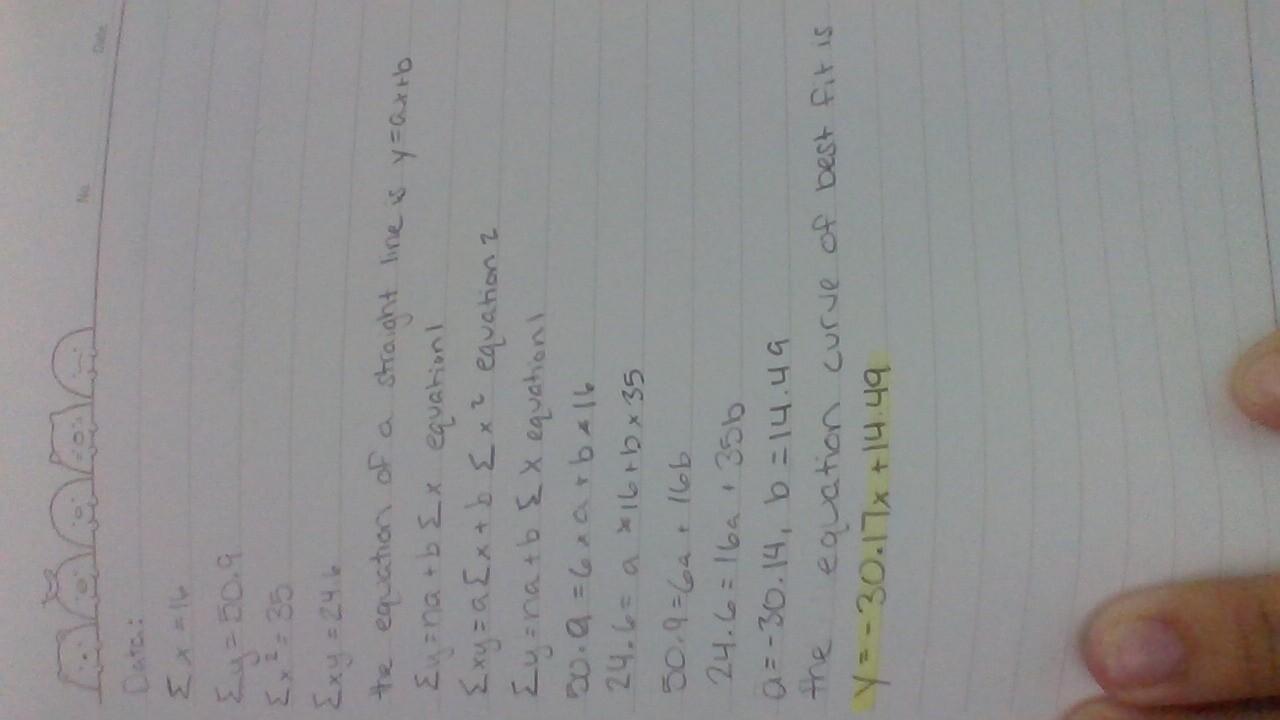 No.
Date
Data:
Σx = 16
Σy = 50.9
Σx² = 35
Σxy = 24.6
the equation of a straight line is y=ax+b
Σy = na + b Σx equation 1
Σxy = a Σx + b Σx² equation 2
Σy = na + b Σx equation 1
50.9 = 6 × a + b × 16
24.6 = a × 16 + b × 35
50.9 = 6a + 16b
24.6 = 16a + 35b
a = -30.14, b = 14.49
the equation curve of best fit is
y = -30.17x + 14.49